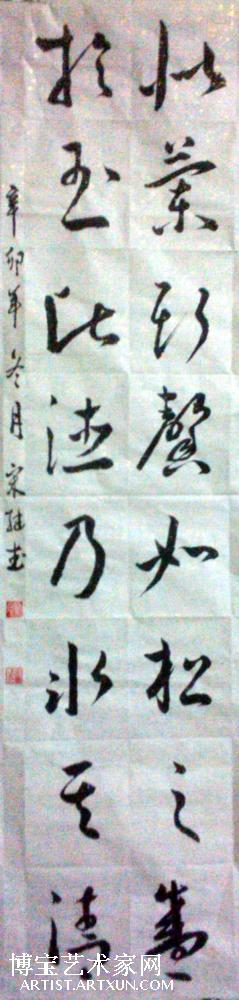 似蘭斯馨如松之盛
於玉比德乃氷其清
辛卯年冬月宋書
博宝艺术家网
ARTIST.ARTXUN.COM